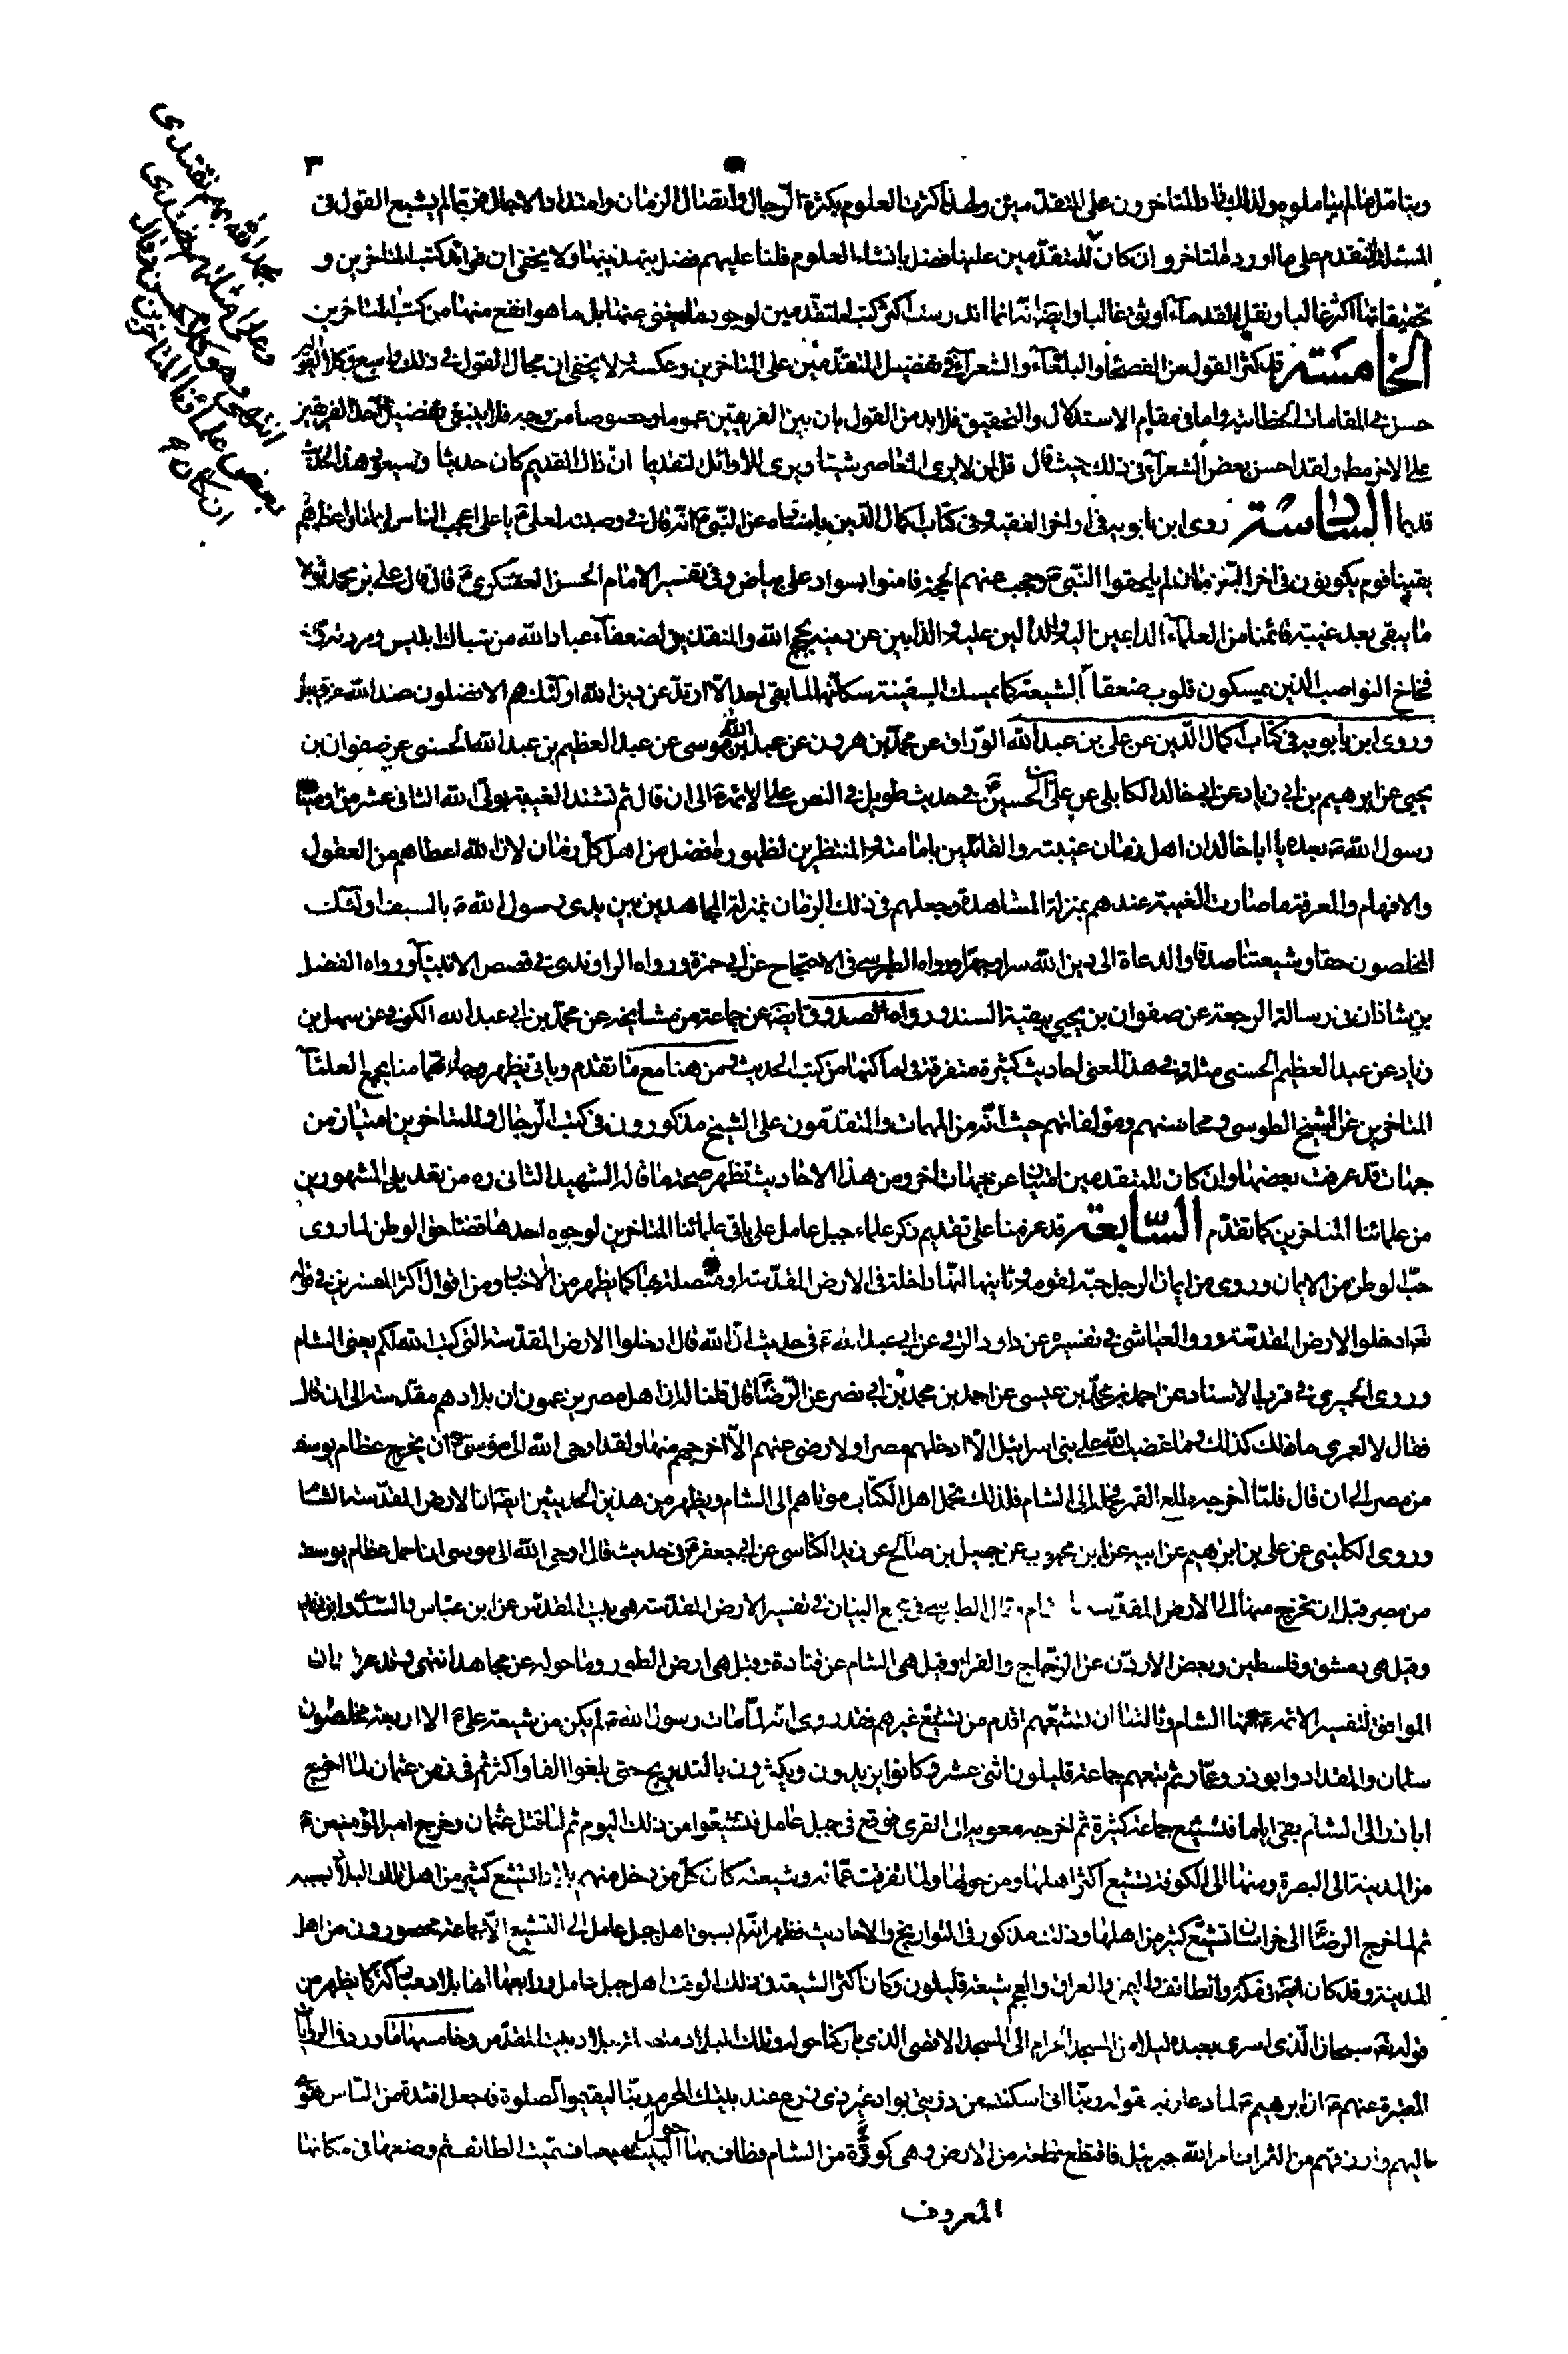 ٣
ويتأمل ما لم يتأملوه ولذلك زاد المتاخرون على المتقدمين ولهذا كثرت العلوم بكثرة الرجال واتصال الزمان وامتداد الاجال فربما لم يشبع القول فى
المسئلة المتقدم على ما اورده المتاخر وان كان للمتقدمين علينا فضل بانشاء العلوم فلنا عليهم فضل بتهذيبها ولا يخفى ان فوائد كتب المتاخرين و
تحقيقاتها اكثر غالبا ونقل القدماء اوثق غالبا وايضا انما اندرست اكثر كتب المتقدمين لوجود ما يغنى عنها بل ما هو انفع منها من كتب المتاخرين
الخامسة قد كثر القول من الفصحاء والبلغاء والشعراء فى تفضيل المتقدمين على المتاخرين وعكسه ولا يخفى ان مجال القول فى ذلك واسع وكلا القولين
حسن فى المقامات الخطابية واما فى مقام الاستدلال والتحقيق فلا بد من القول بان بين الفريقين عموما وخصوصا من وجه فلا ينبغى تفضيل احد الفريقين
على الاخر مط ولقد احسن بعض الشعراء فى ذلك حيث قال قل لمن لا يرى المعاصر شيئا ويرى للأوائل التقديما ان ذاك القديم كان حديثا وسيبقى هذا الحديث
قديما السادسة روى ابن بابويه فى اواخر الفقيه وفى كتاب اكمال الدين باسناده عن النبى ص انه قال فى وصيته لعلى ع يا على اعجب الناس ايمانا واعظمهم
يقينا قوم يكونون فى اخر الزمان لم يلحقوا النبى ص وحجب عنهم الحجة فامنوا بسواد على بياض وفى تفسير الامام الحسن العسكرى ع قال قال على بن محمد لولا
ما يبقى بعد غيبة قائمنا من العلماء الداعين اليه والدالين عليه والذابين عن دينه بحجج الله والمنقذين لضعفاء عباد الله من شباك ابليس ومردته ومن
فخاخ النواصب الذين يمسكون قلوب ضعفاء الشيعة كما يمسك السفينة سكانها لما بقى احد الا ارتد عن دين الله اولئك هم الافضلون عند الله عز وجل
وروى ابن بابويه فى كتاب اكمال الدين عن على بن عبد الله الوراق عن محمد بن هرون عن عبد الله بن موسى عن عبد العظيم بن عبد الله الحسنى عن صفوان بن
يحيى عن ابرهيم بن ابى زياد عن ابى خالد الكابلى عن على بن الحسين ع فى حديث طويل فى النص على الائمة الى ان قال ثم تشتد الغيبة بولى الله الثانى عشر من اوصياء
رسول الله ص بعده يا ابا خالد ان اهل زمان غيبته والقائلين بامامته والمنتظرين لظهوره افضل من اهل كل زمان لان الله اعطاهم من العقول
والافهام والمعرفة ما صارت الغيبة عندهم بمنزلة المشاهدة وجعلهم فى ذلك الزمان بمنزلة المجاهدين بين يدى رسول الله ص بالسيف اولئك
المخلصون حقا وشيعتنا صدقا والدعاة الى دين الله سرا وجهرا ورواه الطبرسى فى الاحتجاج عن ابى حمزة ورواه الراوندى فى قصص الانبياء ورواه الفضل
بن شاذان فى رسالة الرجعة عن صفوان بن يحيى ببقية السند ورواه الصدوق ايضا عن جماعة من مشايخه عن محمد بن ابى عبد الله الكوفى عن سهل بن
زياد عن عبد العظيم الحسنى مثله وفى هذا المعنى احاديث كثيرة متفرقة فى اماكنها من كتب الحديث ومن هنا مع ما تقدم وياتى يظهر وجه اهتمامنا بجمع العلماء
المتاخرين عن الشيخ الطوسى ومحاسنهم ومؤلفاتهم حيث انه من المهمات والمتقدمون على الشيخ مذكورون فى كتب الرجال وللمتاخرين امتياز من
جهات قد عرفت بعضها وان كان للمتقدمين امتياز عن جهات اخر ومن هذا الاحاديث تظهر صحة ما قاله الشهيد الثانى ره من تعديل المشهورين
من علمائنا المتاخرين كما تقدم السابعة قد عزمنا على تقديم ذكر علماء جبل عامل على باقى علمائنا المتاخرين لوجوه احدها قضاء حق الوطن لما روى
حب الوطن من الايمان وروى من ايمان الرجل حبه لقومه وثانيها انها داخلة فى الارض المقدسة او متصلة بها كما يظهر من الاخبار ومن اقوال اكثر المفسرين فى قوله
تع ادخلوا الارض المقدسة وروى العياشى فى تفسيره عن داود الرقى عن ابى عبد الله ع فى حديث ان الله قال ادخلوا الارض المقدسة التى كتب الله لكم يعنى الشام
وروى الحميرى فى قرب الاسناد عن احمد بن محمد بن عيسى عن احمد بن محمد بن ابى نصر عن الرضا ع قال قلنا له ان اهل مصر يزعمون ان بلادهم مقدسة الى ان قال
فقال لا لعمرى ما ذلك كذلك وما غضب الله على بنى اسرائيل الا ادخلهم مصرا ولا رضى عنهم الا اخرجهم منها ولقد اوحى الله الى موسى ان يخرج عظام يوسف
من مصر الى ان قال فلما اخرجه طلع القمر فحمله الى الشام فلذلك تحمل اهل الكتاب موتاهم الى الشام ويظهر من هذين الحديثين ايضا ان الارض المقدسة الشام
وروى الكلينى عن على بن ابرهيم عن ابيه عن ابن محبوب عن جميل بن صالح عن يزيد الكناسى عن ابى جعفر ع فى حديث قال اوحى الله الى موسى ان احمل عظام يوسف
من مصر قبل ان تخرج منها الى الارض المقدسة بالشام وقال الطبرسى فى مجمع البيان فى تفسير الارض المقدسة هى بيت المقدس عن ابن عباس والسدى وابن زيد
وقيل هى دمشق وفلسطين وبعض الاردن عن الزجاج والفراء وقيل هى الشام عن قتادة وقيل هى ارض الطور وما حوله عن مجاهد انتهى وقد عرفت ان
الموافق لتفسير الائمة ع انها الشام وثالثها ان تشيعهم اقدم من تشيع غيرهم فقد روى انه لما مات رسول الله ص لم يكن من شيعة على ع الا اربعة مخلصون
سلمان والمقداد وابو ذر وعمار ثم تبعهم جماعة قليلون اثنى عشر وكانوا يزيدون ويكثرون بالتدريج حتى بلغوا الفا واكثر ثم فى زمن عثمان لما اخرج
ابا ذر الى الشام بقى اياما فتشيع جماعة كثيرة ثم اخرجه معوية الى القرى فوقع فى جبل عامل فتشيعوا من ذلك اليوم ثم لما قتل عثمان وخرج امير المؤمنين ع
من المدينة الى البصرة ومنها الى الكوفة تشيع اكثر اهلها ومن حولها ولما تفرقت عماله وشيعته كان كل من دخل منهم بلادا تشيع كثير من اهل تلك البلاد بسببه
ثم لما خرج الرضا ع الى خراسان تشيع كثير من اهلها وذلك مذكور فى التواريخ والاحاديث فظهر انه لم يسبق اهل جبل عامل الى التشيع الا جماعة محصورون من اهل
المدينة وقد كان ايضا فى مكة والطائف واليمن والعراق والعجم شيعة قليلون وكان اكثر الشيعة فى ذلك الوقت اهل جبل عامل ورابعها انها بلاد مباركة كما يظهر من
قوله تع سبحان الذى اسرى بعبده ليلا من المسجد الحرام الى المسجد الاقصى الذى باركنا حوله وتلك البلاد متصلة ببلاد بيت المقدس وخامسها ما ورد فى الروايات
المعتبرة عنهم ع ان ابرهيم ع لما دعا ربه بقوله ربنا انى اسكنت من ذريتى بواد غير ذى زرع عند بيتك المحرم ربنا ليقيموا الصلوة فاجعل افئدة من الناس تهوى
اليهم وارزقهم من الثمرات امر الله جبرئيل فاقتطع قطعة من الارض وهى كورة من الشام فطاف بها حول البيت سبعا فسميت الطائف ثم وضعها فى مكانها
المعروف